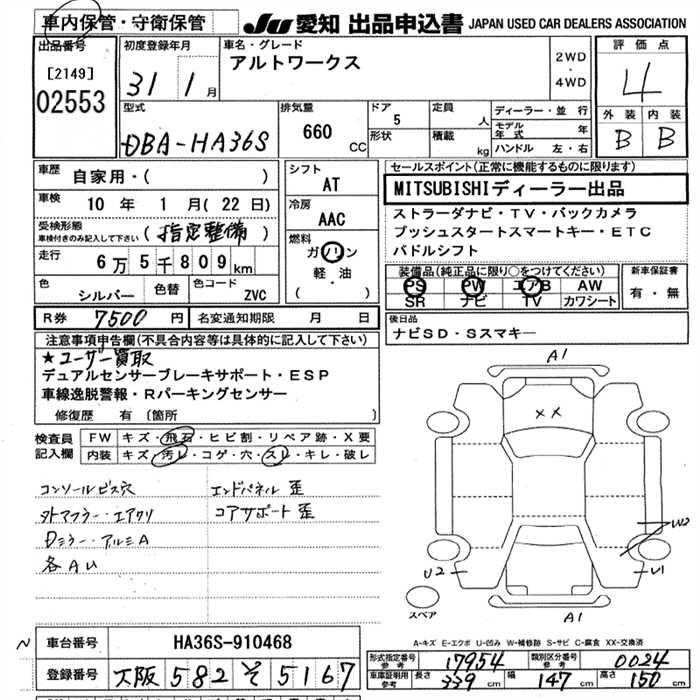 車内保管・守衛保管 JU 愛知 出品申込書 JAPAN USED CAR DEALERS ASSOCIATION
出品番号
[2149]
02553
初度登録年月
31 1月
車名・グレード
アルトワークス
2WD
・
4WD
評価点
4
外装 内装
B B
型式
DBA-HA36S
排気量
660 CC
ドア
5
形状
定員
人
積載
kg
ディーラー・並行
モデル年式 年
ハンドル 左・右
車歴
自家用・( )
車検 10年 1月(22日)
受検形態
車検付きのみ記入して下さい (指定整備)
走行 6万5千809km
色
シルバー
色替
色コード
ZVC
シフト
AT
冷房
AAC
燃料
ガソリン
軽・油
( )
セールスポイント(正常に機能するものに限ります)
MITSUBISHIディーラー出品
ストラーダナビ・TV・バックカメラ
プッシュスタートスマートキー・ETC
パドルシフト
装備品(純正品に限り○をつけてください)
PS PW エアB AW
SR ナビ TV カワシート
新車保証書
有・無
R券 7500円 名変通知期限 月 日
後日品
ナビSD・Sスマキー
注意事項申告欄(不具合内容等は具体的に記入して下さい)
★ユーザー買取
デュアルセンサーブレーキサポート・ESP
車線逸脱警報・Rパーキングセンサー
修復歴 有 (箇所
検査員記入欄
FW キズ・飛石・ヒビ割・リペア跡・X要
内装 キズ・汚レ・コゲ・穴・スレ・キレ・破レ
コンソールビス穴 エンドパネル歪
タトマフラー・エアクリ コアサポート歪
Dミラー・アルミA
各AU
A1
XX
W2
U2
U1
スペア
A1
A-キズ E-エクボ U-凹み W-補修跡 S-サビ C-腐食 XX-交換済
N
車台番号 HA36S-910468
登録番号 大阪 582 そ 5167
形式指定番号
参考
17954
類別区分番号
参考
0024
車庫証明用
参考
長さ 339cm 幅 147cm 高さ 150cm